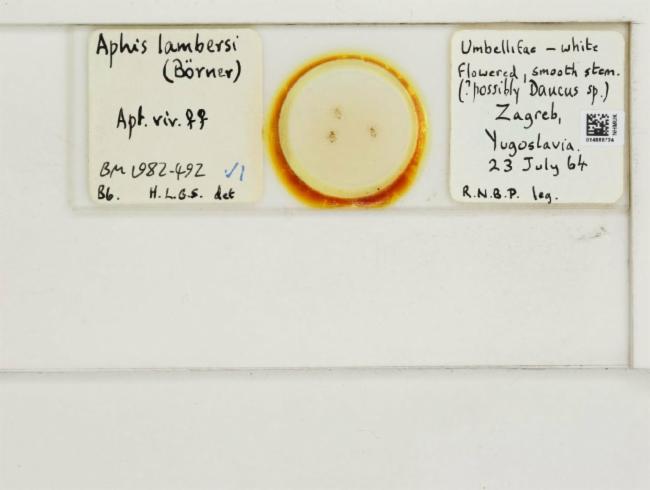 Aphis lambersi
(Börner)
Apt. viv. ♀♀
BM 1982-492 √1
B6. H.L.G.S. det
Umbelliferae – white
flowered, smooth stem.
(? possibly Daucus sp.)
Zagreb,
Yugoslavia.
23 July 64
R.N.B.P. leg.
NHMUK